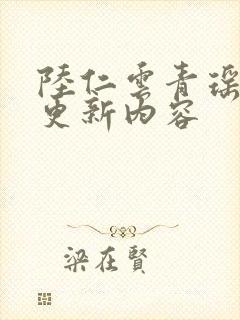 陸仁雲青瑶
更新內容
梁在賢